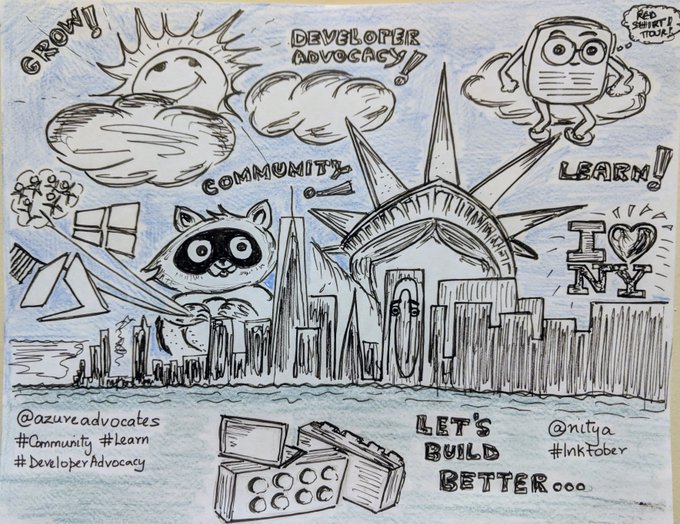 GROW!
DEVELOPER
ADVOCACY!
RED
SHIRT!
TOUR!
COMMUNITY!
LEARN!
I
NY
@azureadvocates
#Community #Learn
#DeveloperAdvocacy
LET'S
BUILD
BETTER...
@nitya
#Inktober